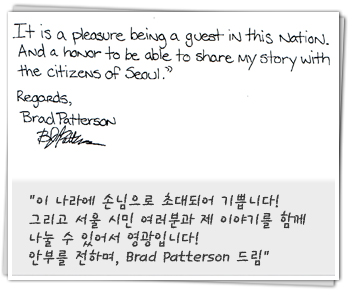 It is a pleasure being a guest in this Nation.
And a honor to be able to share my story with
the citizens of Seoul."
Regards,
Brad Patterson
"이 나라에 손님으로 초대되어 기쁩니다!
그리고 서울 시민 여러분과 제 이야기를 함께
나눌 수 있어서 영광입니다!
안부를 전하며, Brad Patterson 드림"